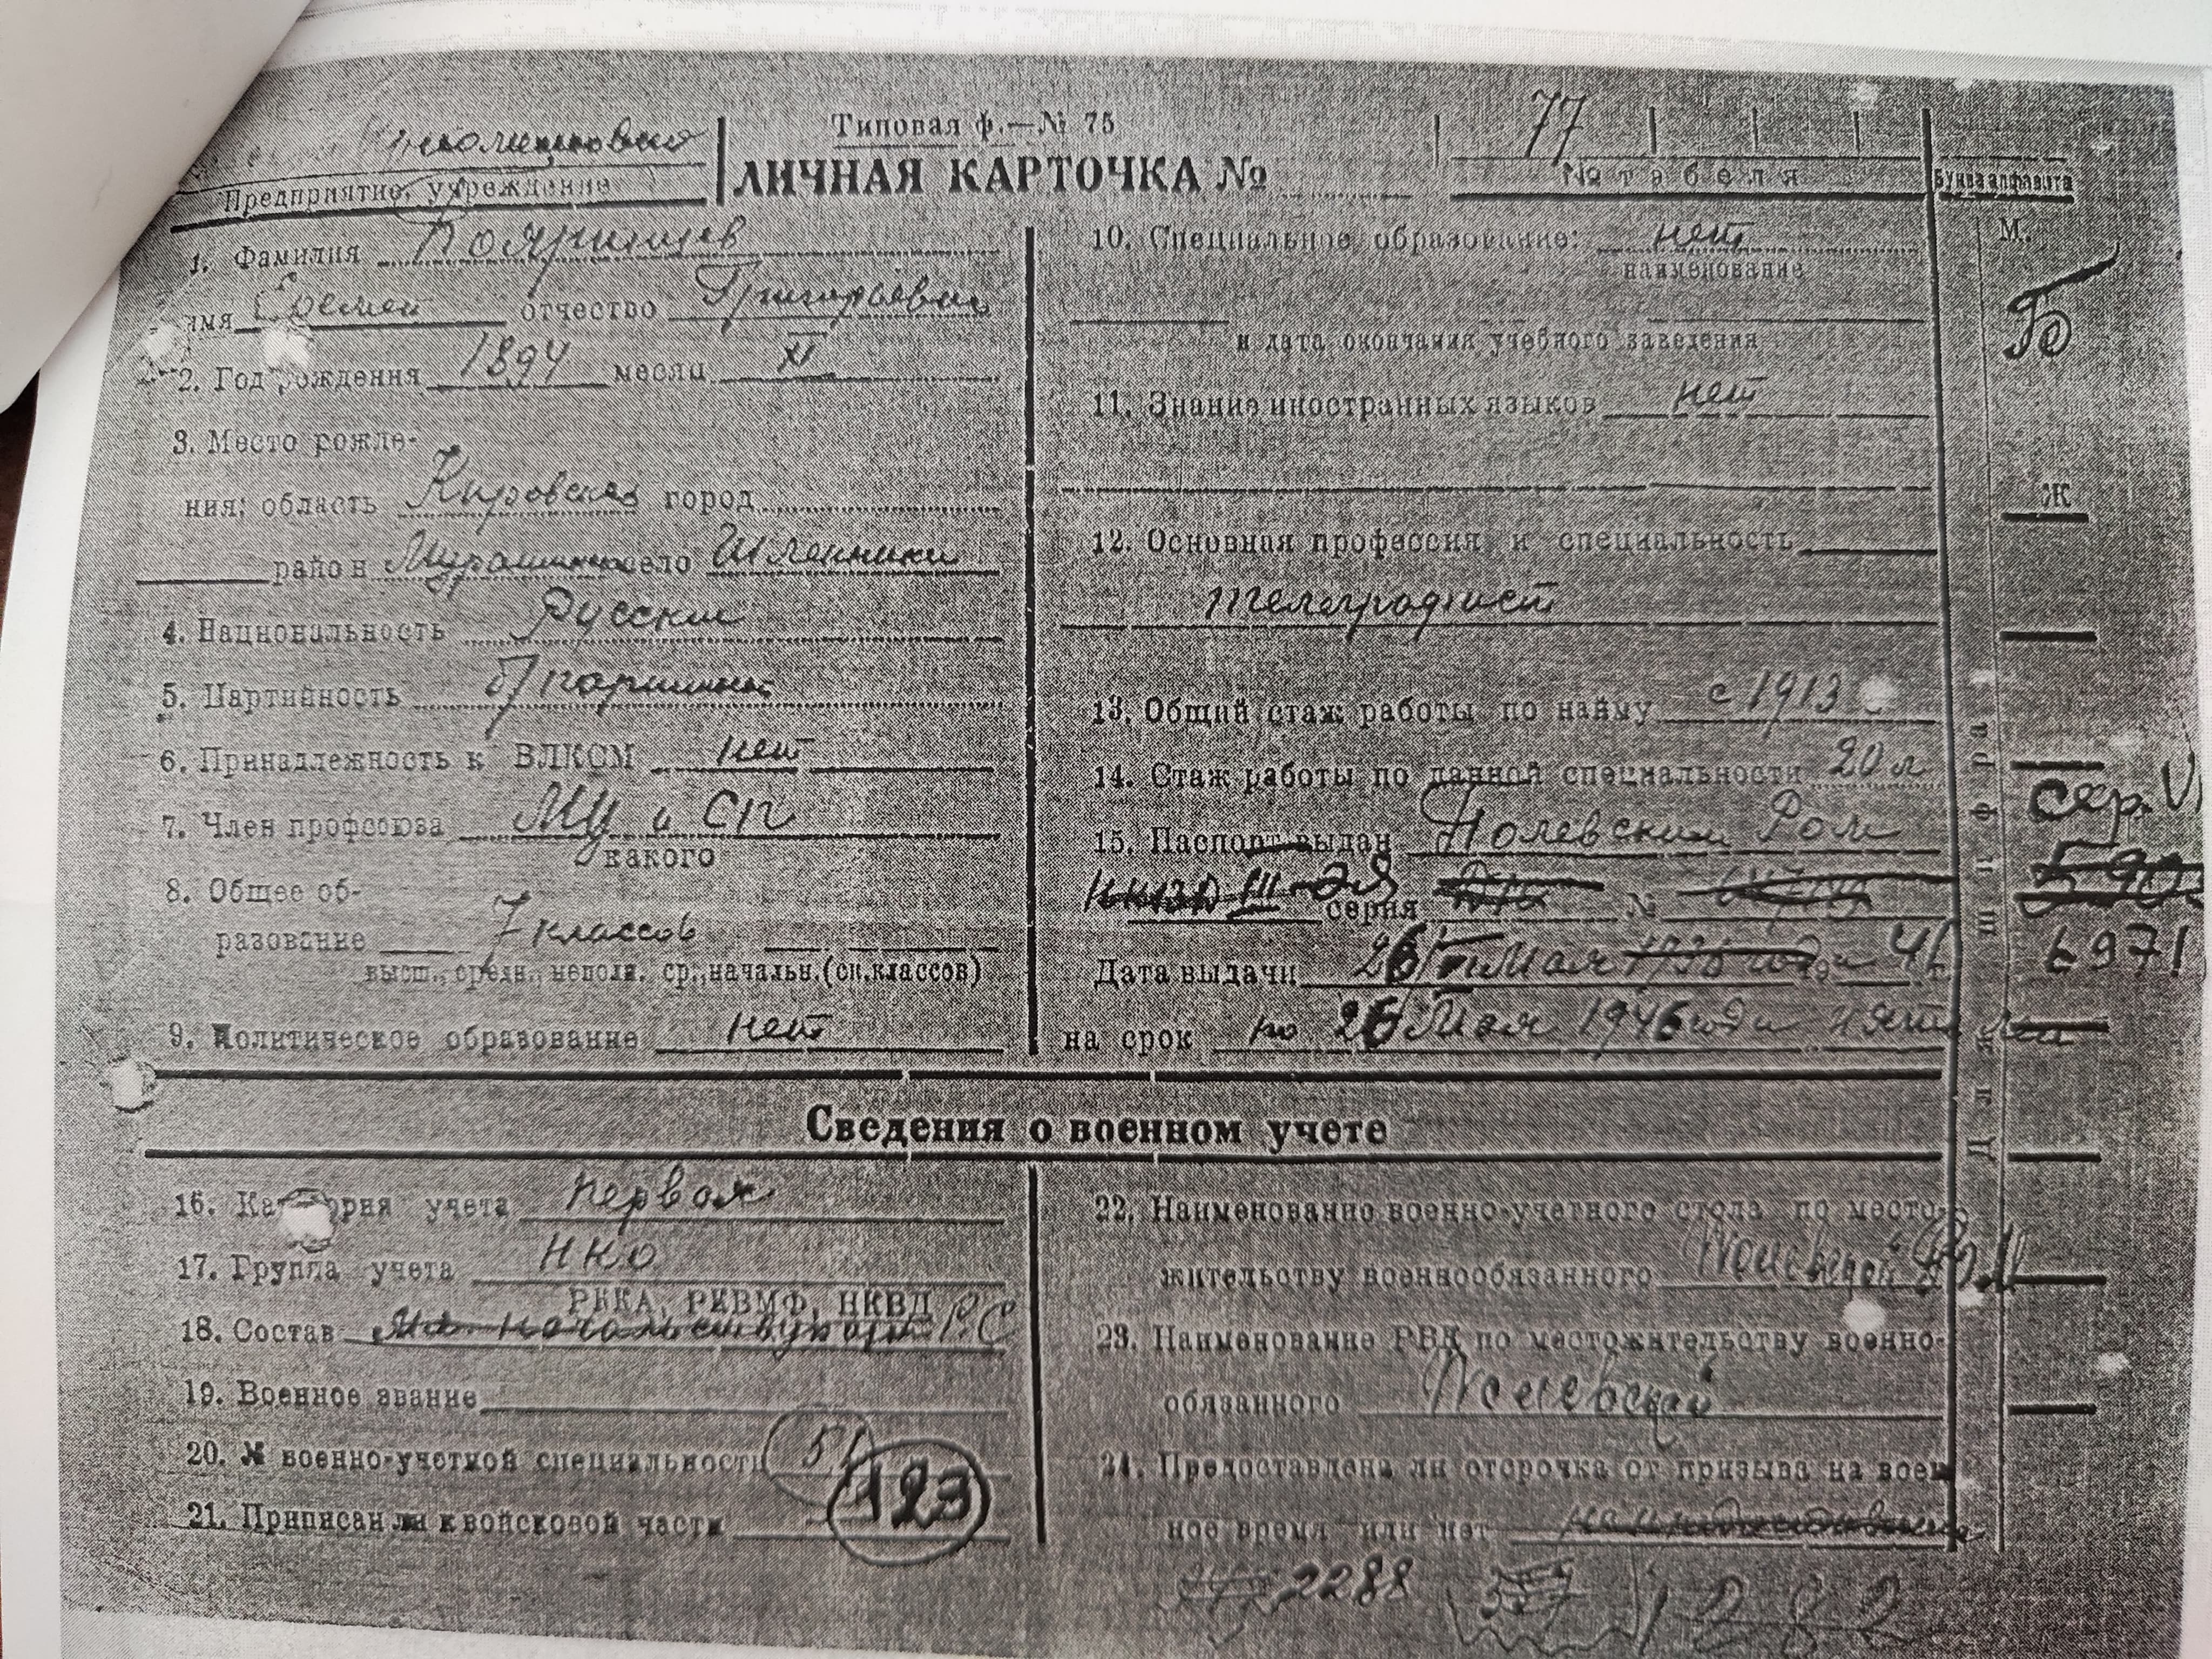 Типовая ф.—№ 75
77
Предприятие, учреждение
ЛИЧНАЯ КАРТОЧКА №
№ табеля
Буква алфавита
1. Фамилия
имя Семен отчество Григорьевич
2. Год рождения 1894 месяц XI
3. Место рожде-
ния: область Кировская город
район село
4. Национальность Русский
5. Партийность б/партийный
6. Принадлежность к ВЛКСМ нет
7. Член профсоюза МЦ и СП
какого
8. Общее об-
разование 7 классов
высш., средн., неполн. ср., начальн. (ск. классов)
9. Политическое образование нет
10. Специальное образование: нет
наименование
и дата окончания учебного заведения
11. Знание иностранных языков нет
12. Основная профессия и специальность
телеграфист
13. Общий стаж работы по найму с 1913
14. Стаж работы по данной специальности 20 л
15. Паспорт выдан Полевским Ром
НКВД III-ЭЯ серия №
Дата выдачи 26 Мая 41 г.
на срок по 26 Мая 1946 года
М.
Ж
Шифр
Сер.
6971
Сведения о военном учете
16. Категория учета Первая
17. Группа учета НКО
РККА, РКВМФ, НКВД
18. Состав Р.С
19. Военное звание
20. № военно-учетной специальности 51
123
21. Приписан ли к войсковой части
22. Наименование военно-учетного стола по место-
жительству военнообязанного Полевской
23. Наименование РВК по местожительству военно-
обязанного Полевской
24. Предоставлена ли отсрочка от призыва на воен
ное время или нет
2288 1282